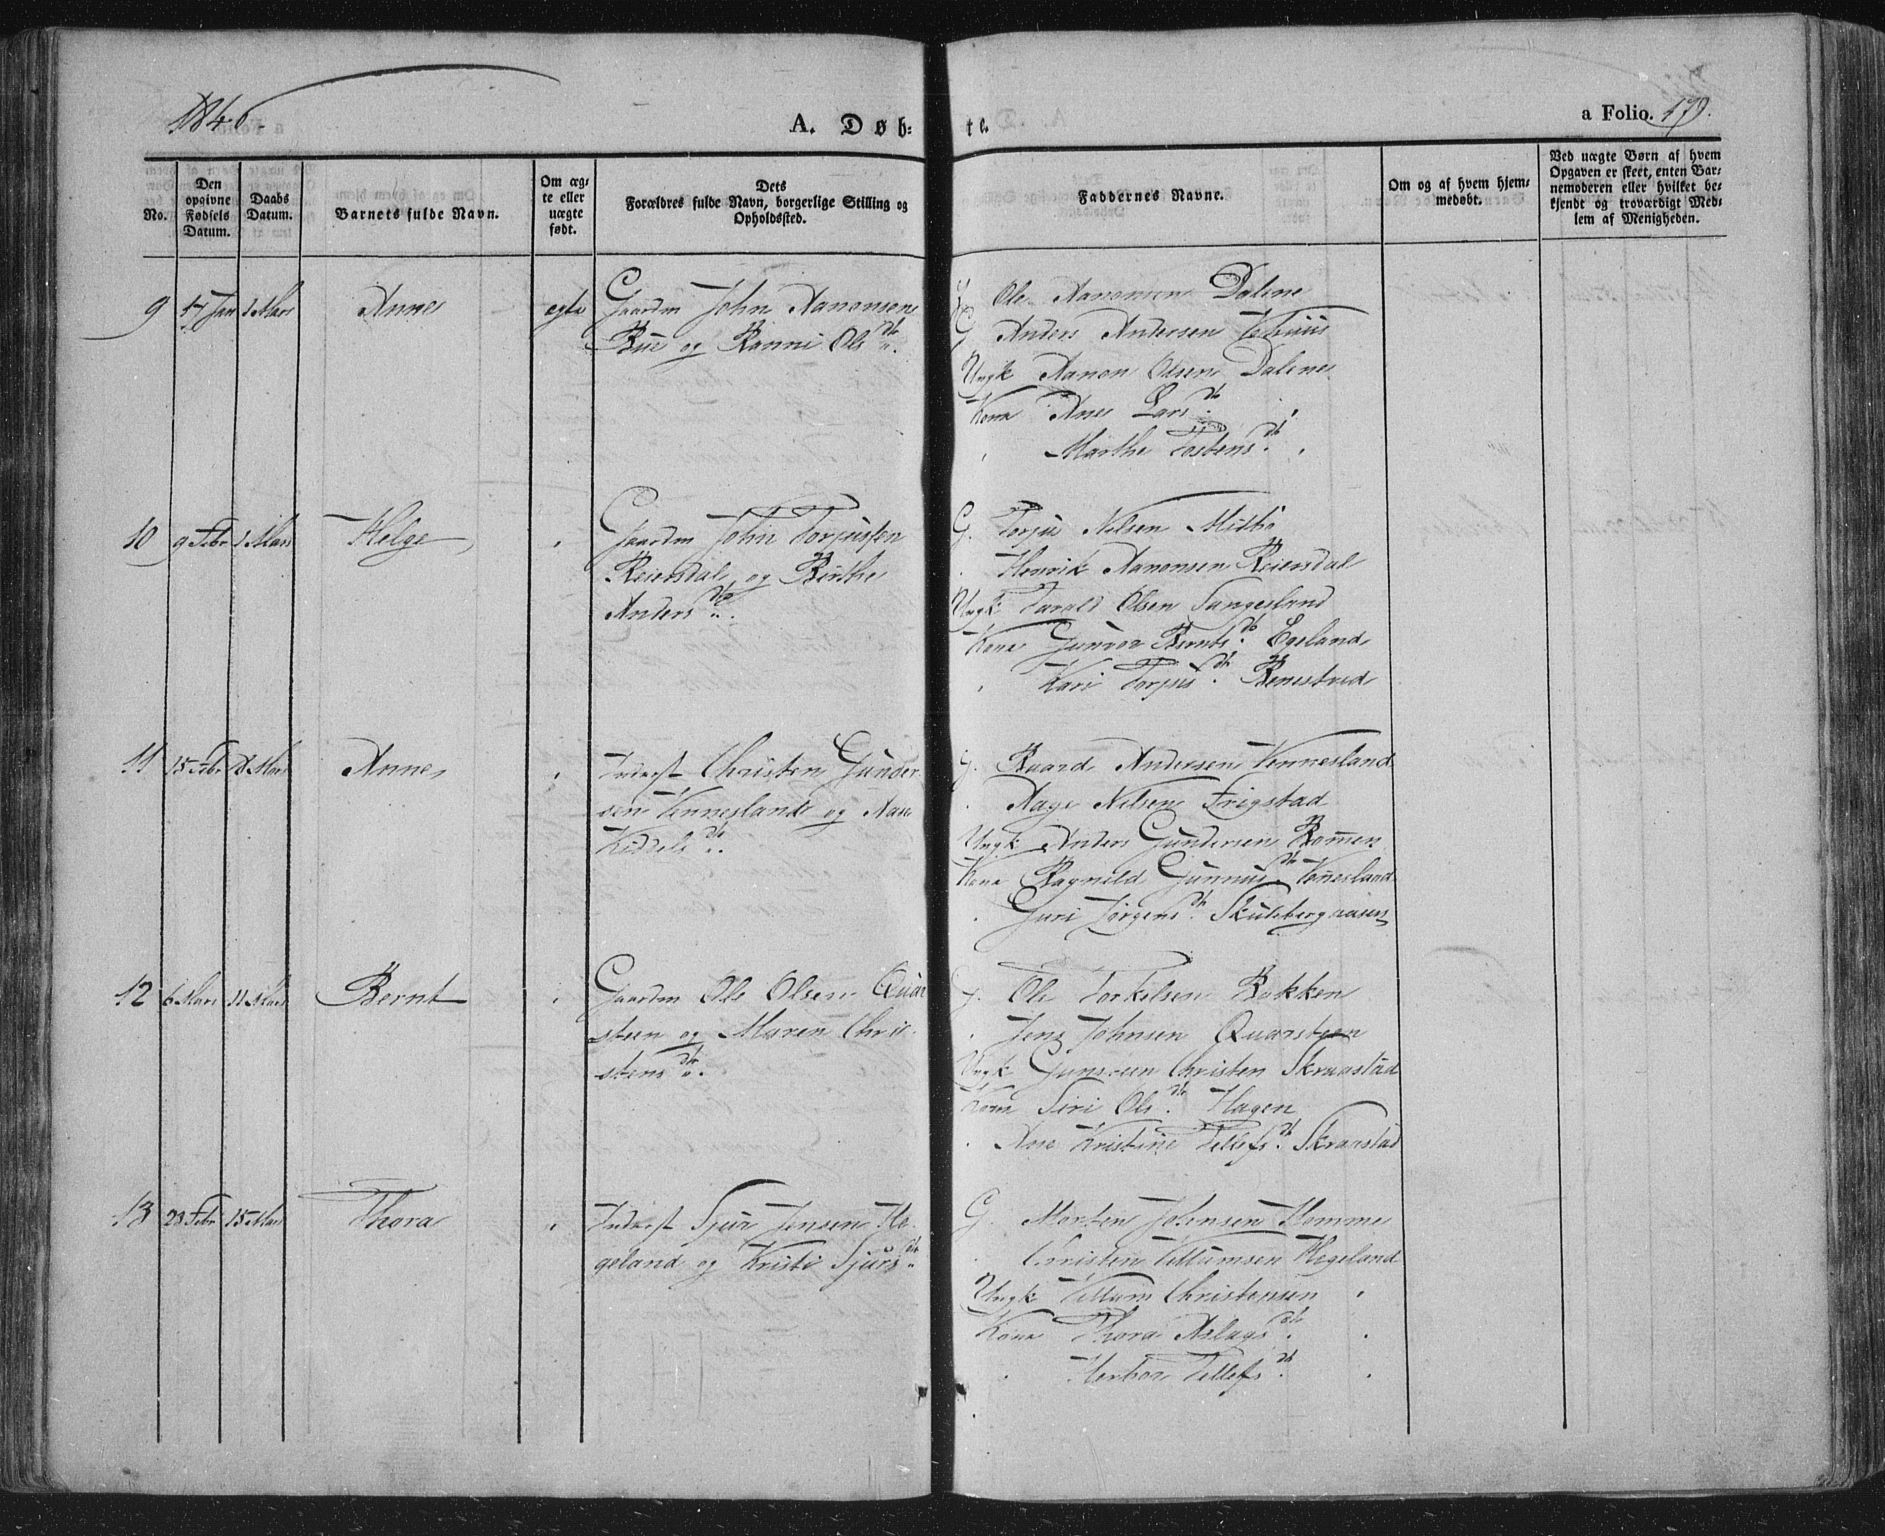 1846.
A. Døb-
te.
a Folio. 179.
No.
Den opgivne Fødsels Datum.
Daabs Datum.
Barnets fulde Navn.
Om ægte eller uægte født.
Dets Forældres fulde Navn, borgerlige Stilling og Opholdssted.
Faddernes Navne.
Om og af hvem hjemmedøbt.
Ved uægte Børn af hvem Opgaven er skeet, enten Barnemoderen eller hvilket bekjendt og troværdigt Medlem af Menigheden.
9 Jan 1 Mars Anne egte Gaardm John Aanonsen
Bue og Ranni Ols Dtr.
G Ole Aanonsen Dalene
G Anders Andersen
Ungk Aanon Olsen Dalene
Kone Ane Lars Dt.
Marthe Tostens dt.
10 9 Febr 1 Mars Helge Gaardm John Torjusen
Reiersdal og Birthe
Anders Dtr.
G. Torju Nilsen Mitbø
Henrik Aanonsen Reiersdal
Ungk Tarald Olsen Sangesland
Kone Gunvor Bernts D. Egeland
Kari Torjus dt. Renestad
11 15 Febr 8 Mars Anne Inderst Christen Gunder-
sen Vennesland og Aase
Kiddels Dtr.
G. Baard Andersen Vennesland
Aage Nilsen Frigstad
Ungk Anders Gundersen Romen
Kone Ragnild Gunnus Dtr. Vennesland
Guri Jørgens Dt. Skulsbergaasen
12 6 Mars 11 Mars Bernt Gaardm Ole Olsen Quar
steen og Maren Chri-
stens dtr.
G. Ole Torkelsen Bakken
Jens Johnsen Quarsteen
Ungk Christen Skraastad
Kone Siri Ols Dtr. Hagen
Ane Kristine Tellefs Dt. Skraastad
13 23 Febr 15 Mars Thora Inderst Sjur Jensen He-
geland og Kristi Sjurs dtr
G. Morten Johnsen Homme
Christen Villumsen Hegeland
Ungk Villum Christensen
Kone Thora Aslags Dtr.
Herbor Tellefs Dt.